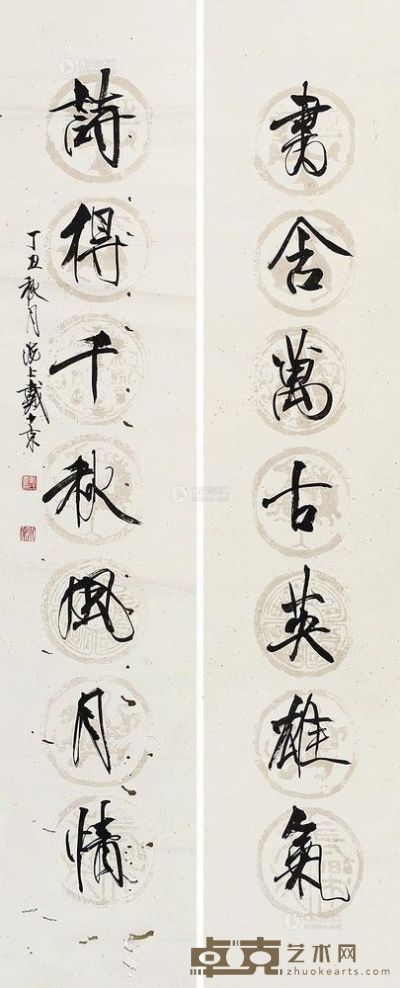 書舍萬古英雄氣
詩得千秋風月情
丁丑秋月海上戴小京
卓克艺术网
zhuokearts.com